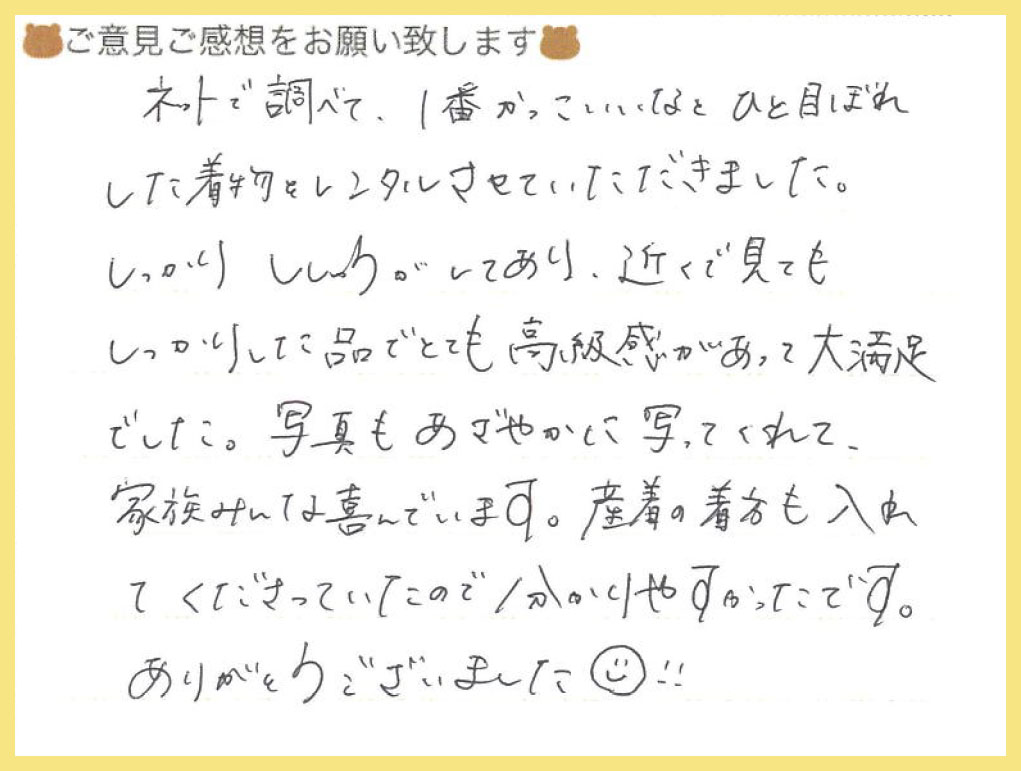 ご意見ご感想をお願い致します
ネットで調べて、1番かっこいいなと ひと目ぼれ
した着物をレンタルさせていただきました。
しっかり ししゅうがしてあり、近くで見ても
しっかりした品でとても高級感があって大満足
でした。写真もあざやかに写ってくれて、
家族みんな喜んでいます。産着の着方も入れ
てくださっていたので分かりやすかったです。
ありがとうございました☺!!